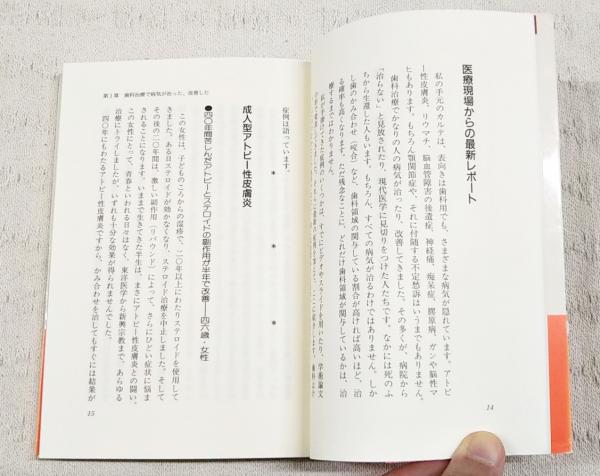 医療現場からの最新レポート
私の手元のカルテは、表向きは歯科用でも、さまざまな病気が隠れています。アトピ
ー性皮膚炎、リウマチ、脳血管障害の後遺症、神経痛、痴呆症、膠原病、ガンや脳性マ
ヒもあります。もちろん顎関節症や、それに付随する不定愁訴はいうまでもありません。
歯科治療でかなりの人の病気が治ったり、改善してきました。その多くが、病院から
「治らない」と見放されたり、現代医学に見切りをつけた人たちです。なかには死のふ
ちから生還した人もいます。もちろん、すべての病気が治るわけではありません。しか
し歯のかみ合わせ(咬合)など、歯科領域の関与している割合が高ければ高いほど、治
る確率も高くなります。ただ残念なことに、どれだけ歯科領域が関与しているかは、治
療するまではわかりません。
14
第1章 歯科治療で病気が治った、改善した
症例は語っています。
* * *
成人型アトピー性皮膚炎
●四〇年間苦しんだアトピーとステロイドの副作用が半年で改善―四六歳・女性
この女性は、子どものころからの湿疹で、二〇年以上にわたりステロイドを使用して
きました。ある日ステロイドが効かなくなり、ステロイド治療を中止しました。そして
その後の二〇年間は、激しい副作用(リバウンド)によって、さらにひどい症状に悩ま
されることになります。いままで生きてきた半生は、まさにアトピー性皮膚炎との闘い。
この女性にとって、青春といわれる日々はなく、東洋医学から新興宗教まで、あらゆる
治療にトライしましたが、いずれも十分な効果が得られませんでした。
四〇年にもわたるアトピー性皮膚炎ですから、かみ合わせを治してもすぐには結果が
15